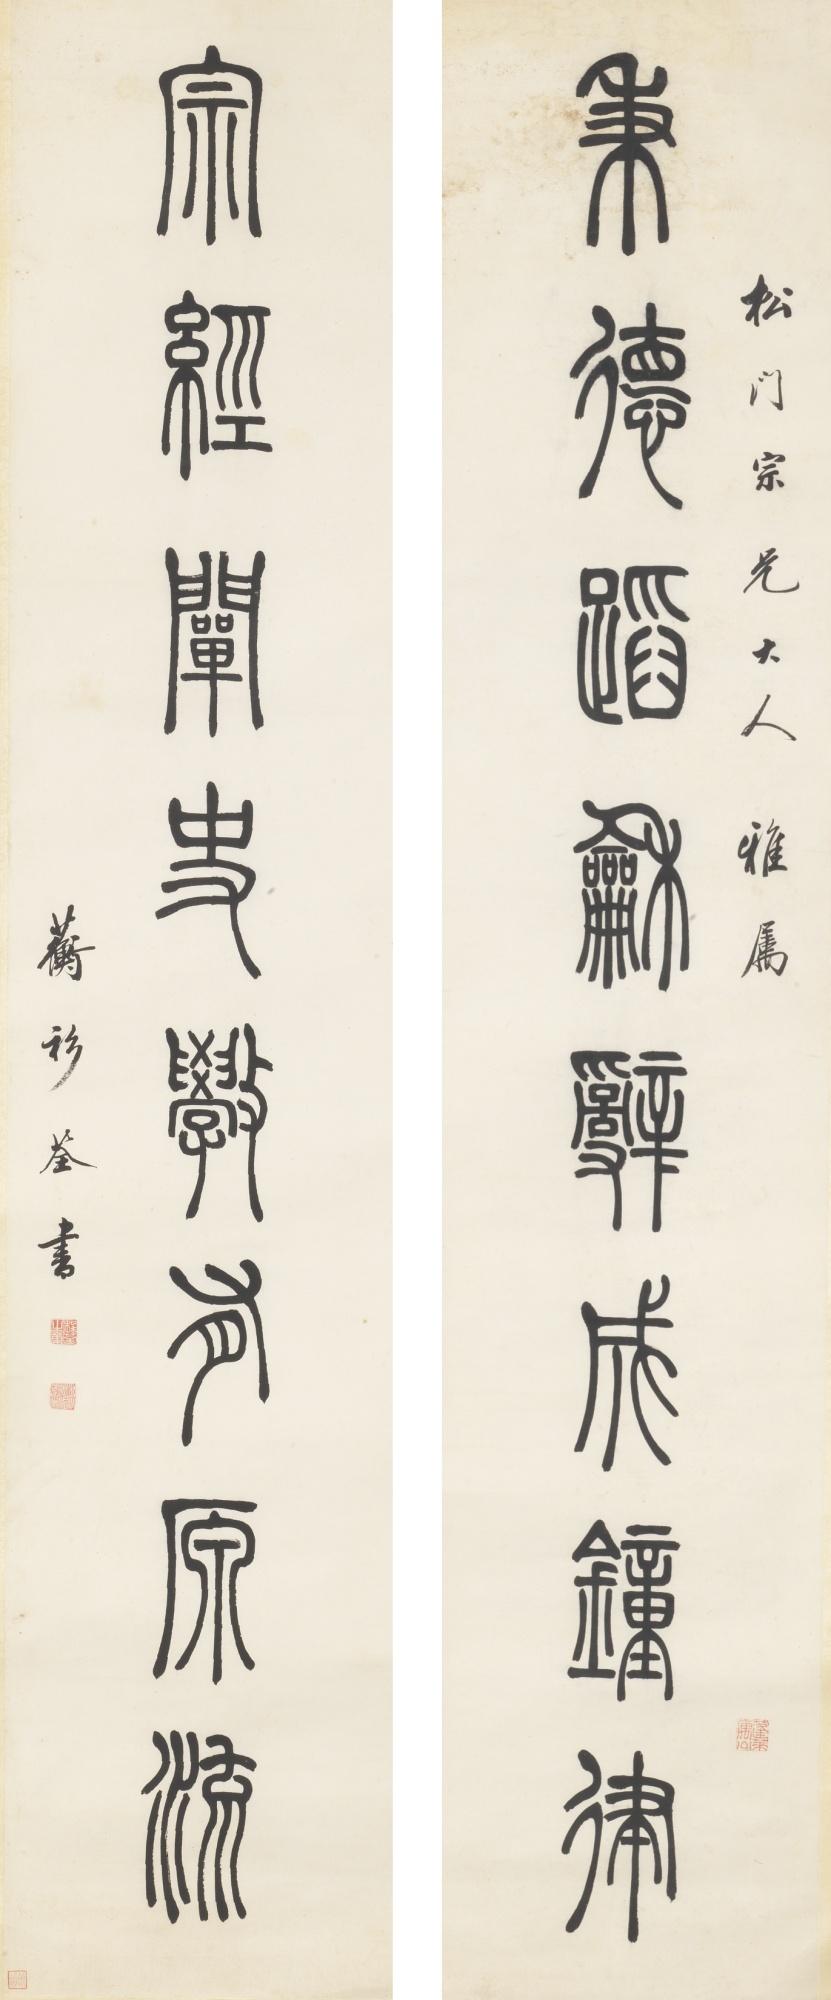 松門宗兄大人雅屬
秉德蹈龢辭成鐘律
宗經闡史學有原流
蘅衫荃書